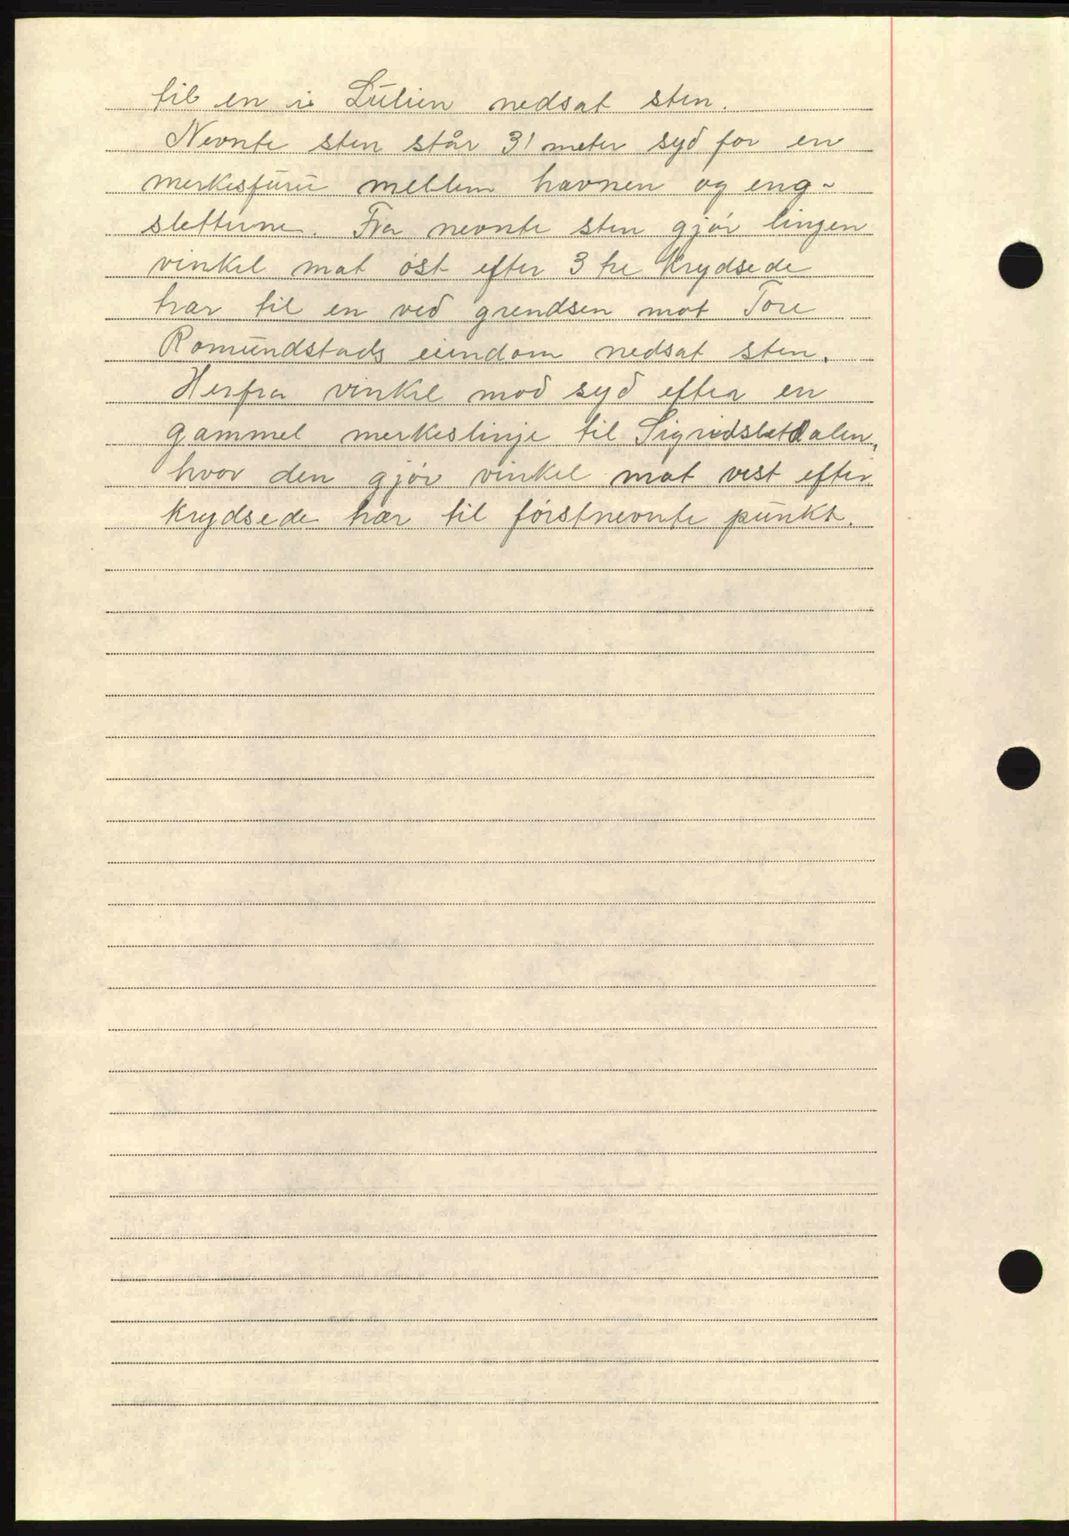 til en i Lulien nedsat sten.
Nevnte sten står 31 meter syd for en
merkesfuru mellem havnen og eng-
sletterne. Fra nevnte sten gjør lingen
vinkel mot øst efter 3 tre krydsede
trær til en ved grendsen mot Tore
Romundstads eiendom nedsat sten.
Herfra vinkel mod syd efter en
gammel merkeslinje til Sigridsletdalen,
hvor den gjør vinkel mot vest efter
krydsede trær til førstnevnte punkt.